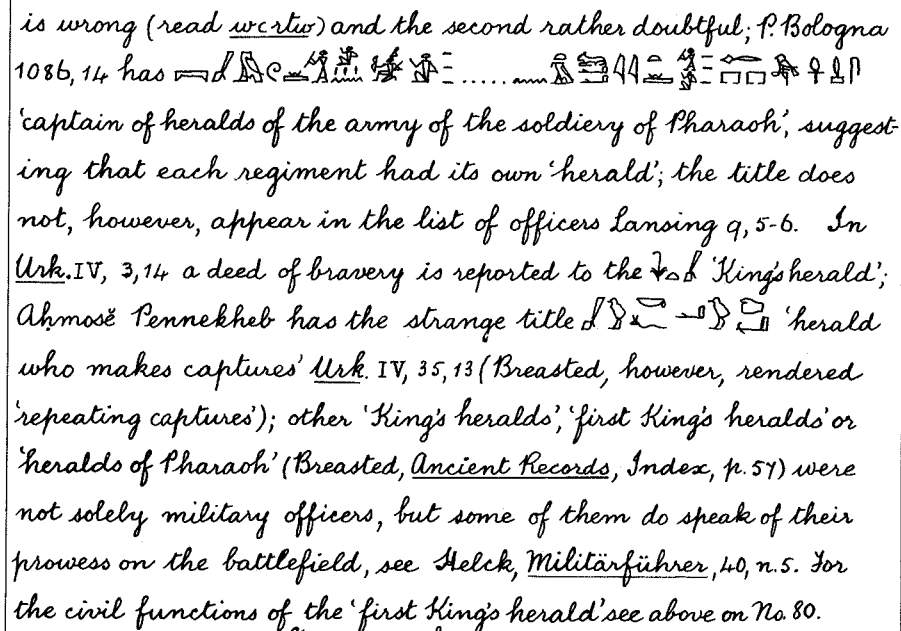 is wrong (read wcrtw) and the second rather doubtful; P. Bologna
1086, 14 has
'captain of heralds of the army of the soldiery of Pharaoh', suggest-
ing that each regiment had its own 'herald'; the title does
not, however, appear in the list of officers Lansing 9, 5-6. In
Urk. IV, 3, 14 a deed of bravery is reported to the 'King's herald';
Aḥmosĕ Pennekheb has the strange title 'herald
who makes captures' Urk. IV, 35, 13 (Breasted, however, rendered
'repeating captures'); other 'King's heralds', 'first King's heralds' or
'heralds of Pharaoh' (Breasted, Ancient Records, Index, p. 57) were
not solely military officers, but some of them do speak of their
prowess on the battlefield, see Helck, Militärführer, 40, n. 5. For
the civil functions of the 'first King's herald' see above on No. 80.